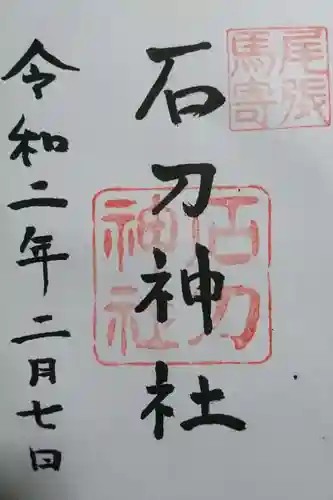 尾張
馬寄
石刀神社
石刀
神社
令和二年二月七日